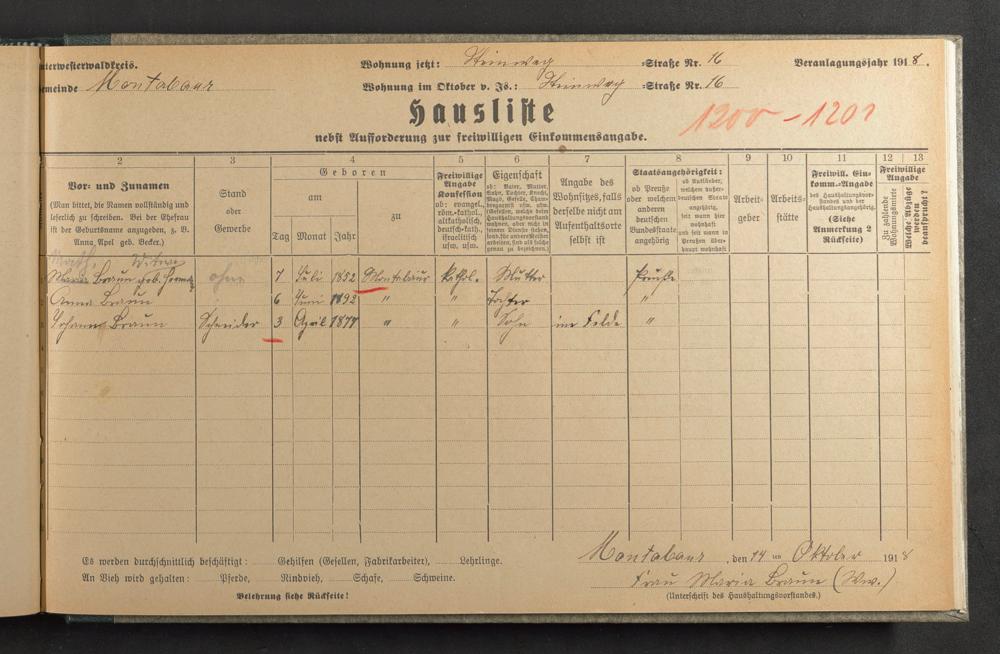 nterwesterwaldkreis.
Wohnung jetzt: Steinweg =Straße Nr. 16
Veranlagungsjahr 1918.
emeinde Montabaur
Wohnung im Oktober v. Js.: Steinweg =Straße Nr. 16
Hausliste
1200 - 1201
nebst Aufforderung zur freiwilligen Einkommensangabe.
2 3 4 5 6 7 8 9 10 11 12 13
Vor- und Zunamen
(Man bittet, die Namen vollständig und
leserlich zu schreiben. Bei der Ehefrau
ist der Geburtsname anzugeben, z. B.
Anna Apel geb. Becker.)
Stand
oder
Gewerbe
Geboren
am
zu
Tag Monat Jahr
Freiwillige
Angabe
Konfession
ob: evangel.,
röm.-kathol.,
altkatholisch,
deutsch-kath.,
israelitisch
usw. usw.
Eigenschaft
Angabe des
Wohnsitzes, falls
derselbe nicht am
Aufenthaltsorte
selbst ist
Staatsangehörigkeit:
ob Preuße
oder welchem
anderen
deutschen
Bundesstaate
angehörig
ob Ausländer,
welchem außer-
deutschen Staate
angehörig,
seit wann hier
wohnhaft
und seit wann in
Preußen über-
haupt wohnhaft
Arbeit-
geber
Arbeits-
stätte
Freiwill. Ein-
komm.-Angabe
des Haushaltungsvor-
standes und der
Haushaltungsangehör.
(Siehe
Anmerkung 2
Rückseite)
Freiwillige
Angabe
Zu zahlende
Wohnungsmiete
Welche Abzüge
werden
beansprucht?
Math. Witwe
Maria Braun geb. ohne 7 Juli 1852 Montabaur kathol. Mutter Preuße
Anna Braun 6 Juni 1892 " " Tochter "
Johann Braun Schneider 3 April 1877 " " Sohn im Felde "
Es werden durchschnittlich beschäftigt: Gehilfen (Gesellen, Fabrikarbeiter), Lehrlinge.
Montabaur, den 14 ten Oktober 1918
An Vieh wird gehalten: Pferde, Rindvieh, Schafe, Schweine.
Frau Maria Braun (Ww.)
Belehrung siehe Rückseite!
(Unterschrift des Haushaltungsvorstandes.)